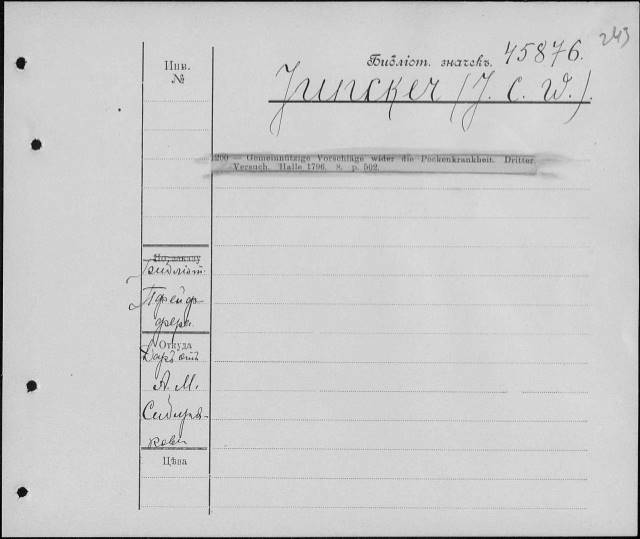 243
Инв. №
Библіот. значекъ. 45876.
Juncker (J. C. W.).
1200 — Gemeinnützige Vorschläge wider die Pockenkrankheit. Dritter
Versuch. Halle 1796. 8. p. 502.
По заказу
Библіот.
Пфейф-
фера
Откуда
Даръ отъ
А. М.
Сибиря-
кова
Цѣна